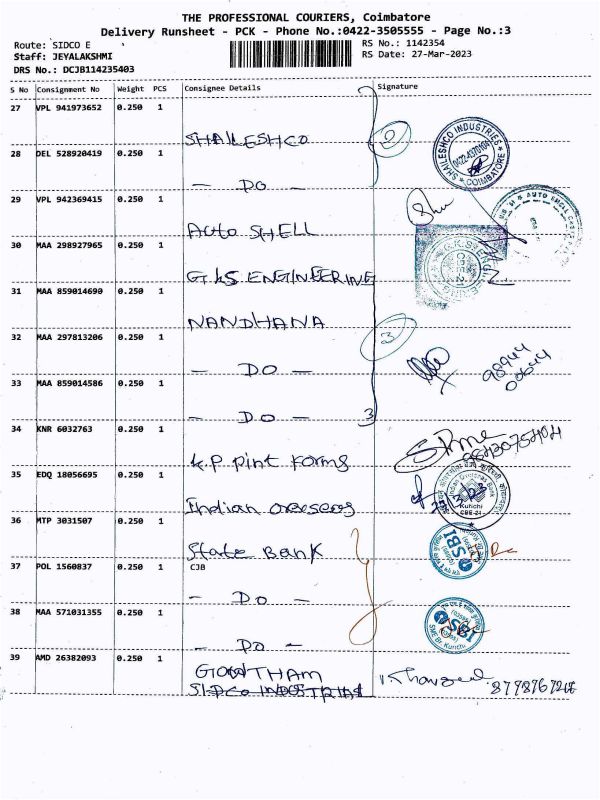 THE PROFESSIONAL COURIERS, Coimbatore
Delivery Runsheet - PCK - Phone No.:0422-3505555 - Page No.:3
Route: SIDCO E
RS No.: 1142354
Staff: JEYALAKSHMI
RS Date: 27-Mar-2023
DRS No.: DCJB114235403
S No Consignment No Weight PCS Consignee Details Signature
27 VPL 941973652 0.250 1
SHAILESHCO
2
SHAILESHCO INDUSTRIES
COIMBATORE
28 DEL 528920419 0.250 1
- DO -
29 VPL 942369415 0.250 1
Auto SHELL
30 MAA 298927965 0.250 1
G.K.S ENGINEERING
31 MAA 859014690 0.250 1
NANDHANA
32 MAA 297813206 0.250 1
3
- DO -
98944
00644
33 MAA 859014586 0.250 1
- DO - 3
34 KNR 6032763 0.250 1
K.P Pint Forms
35 EDQ 18056695 0.250 1
Indian overseas
Indian Overseas Bank
Kurichi
CBE-21
36 MTP 3031507 0.250 1
State Bank
SBI
37 POL 1560837 0.250 1 CJB
- DO -
38 MAA 571031355 0.250 1
- DO -
SBI
39 AMD 26382093 0.250 1
GOWTHAM
SIDCO INDUSTRIAL